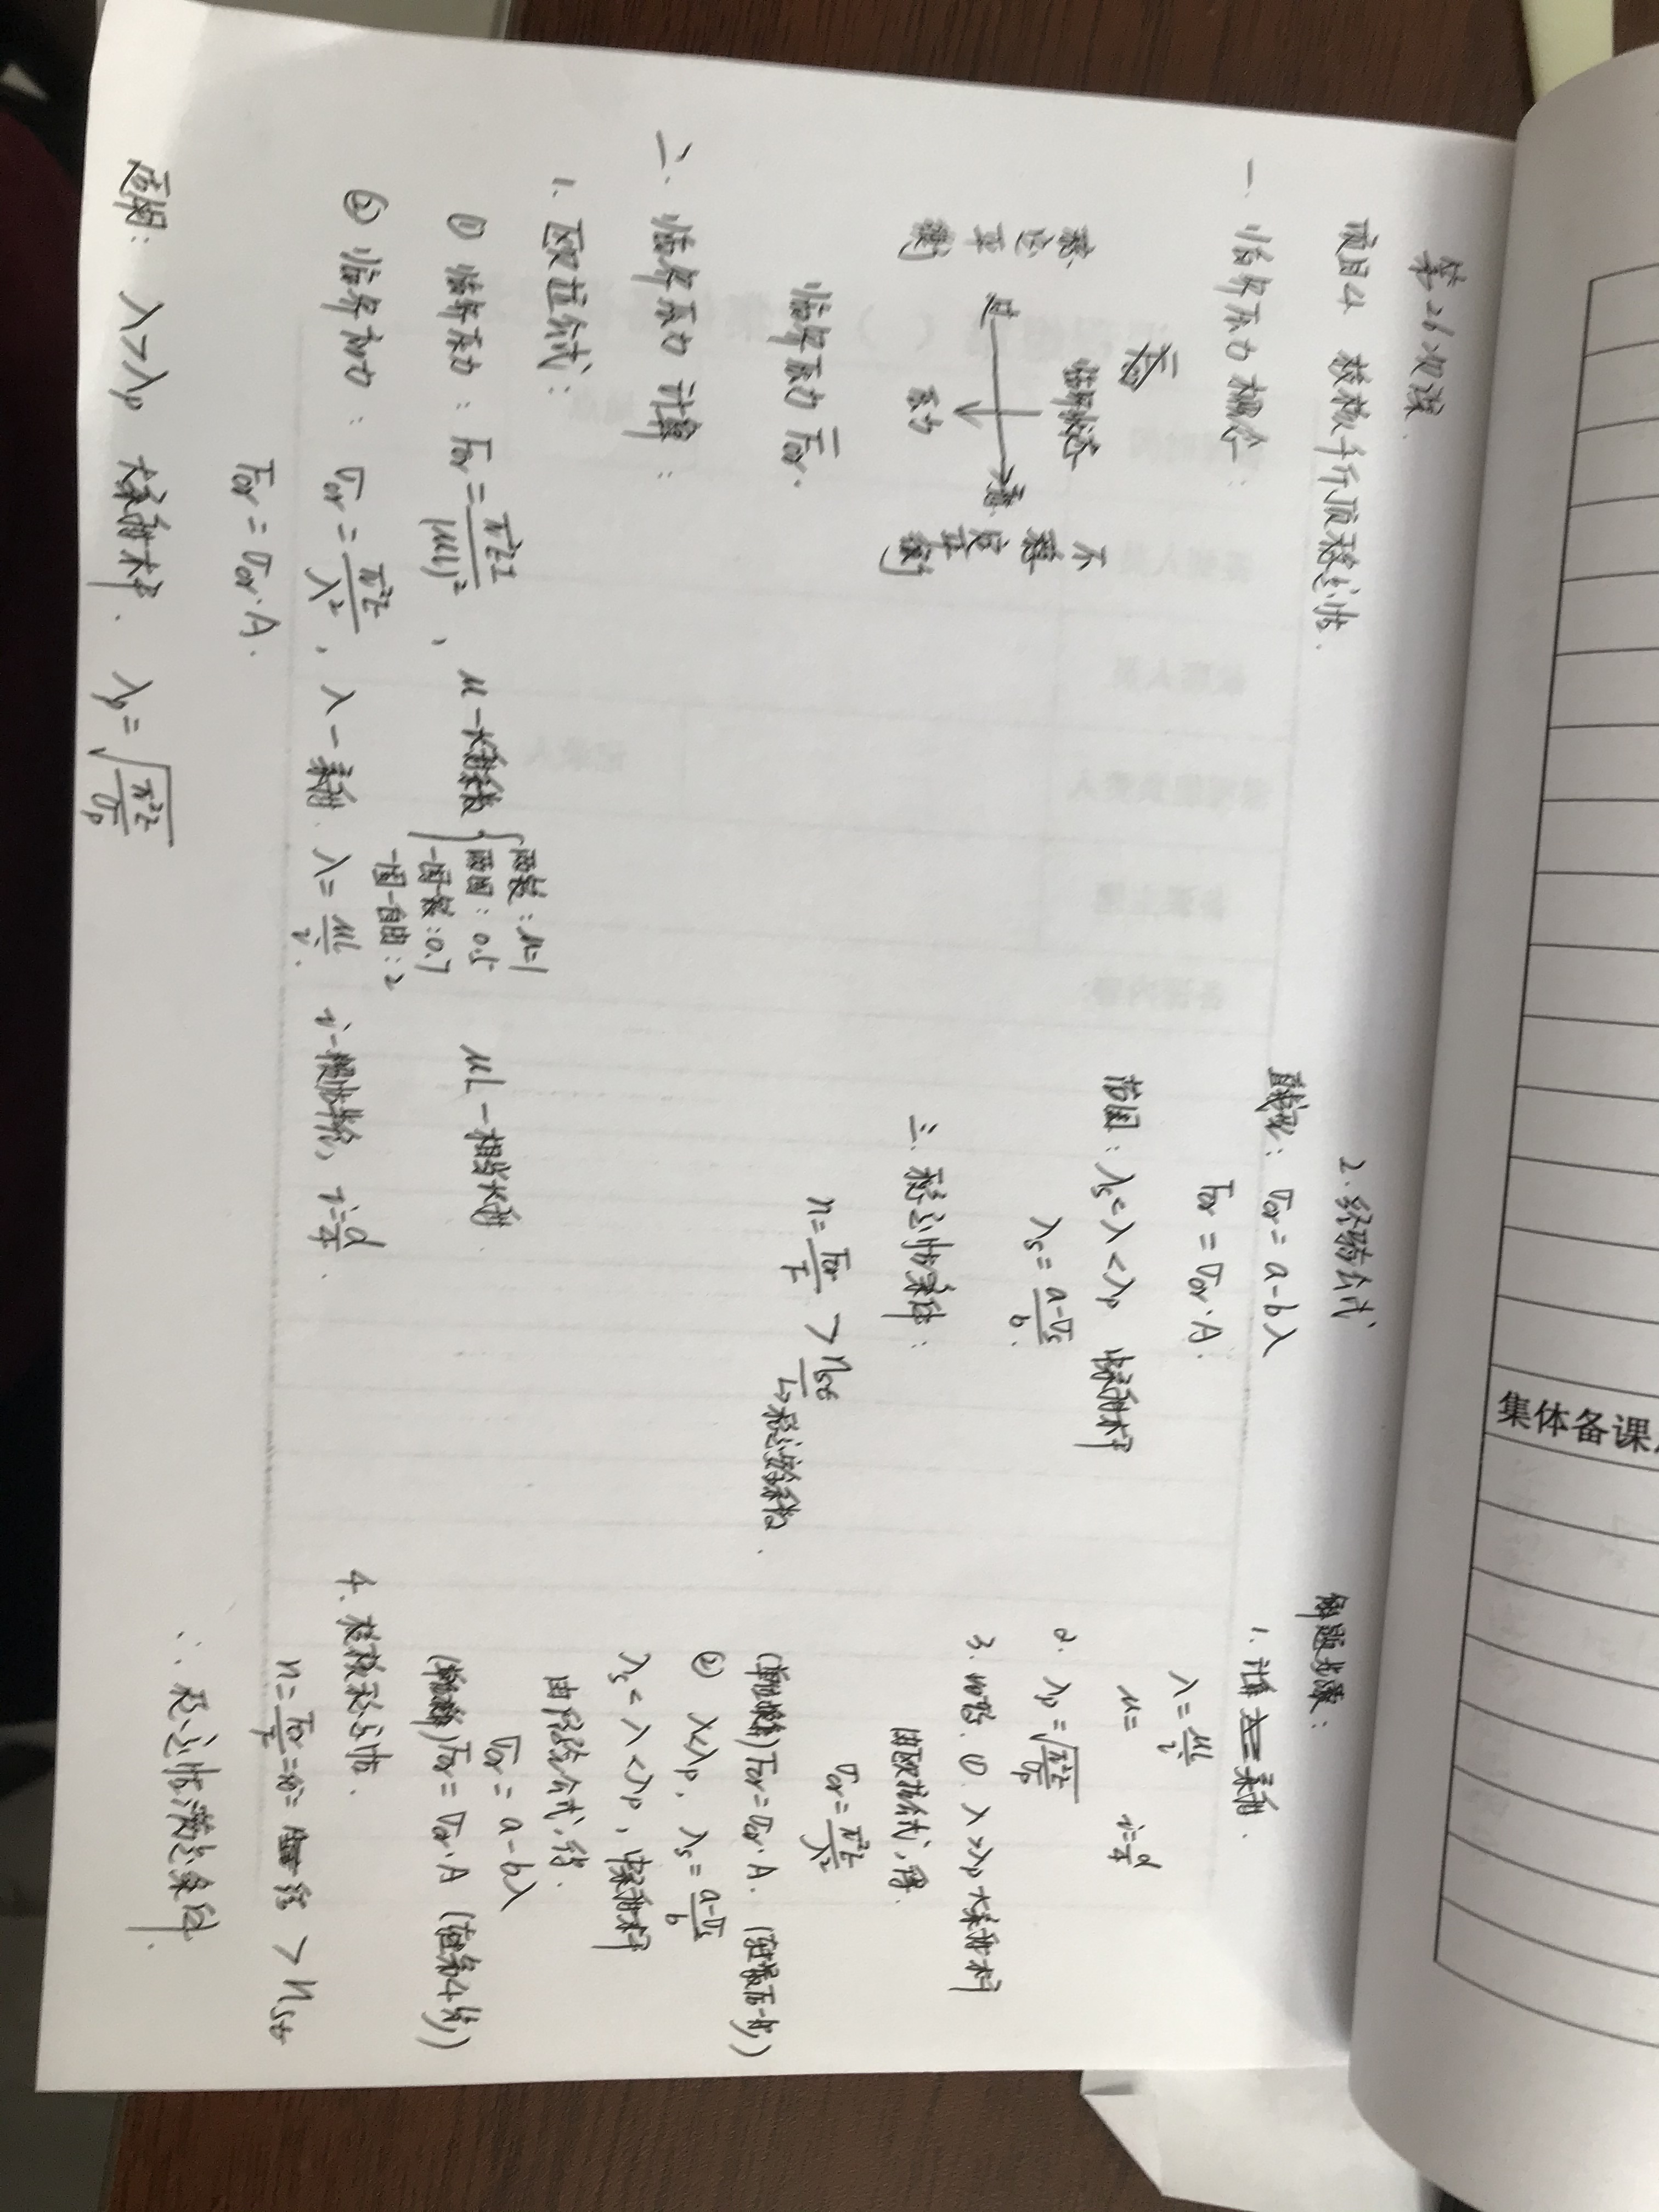 第26次课
项目4 校核千斤顶稳定性.
一. 临界压力概念:
临界状态
稳定平衡
压力
不稳定平衡
临界压力 Fcr.
二. 临界压力计算:
1. 欧拉公式:
① 临界压力: Fcr = π²EI/(μL)², μ—长度系数 { 两铰: μ=1
两固: 0.5
一固一铰: 0.7
一固一自由: 2
μL—相当长度.
② 临界应力: σcr = π²E/λ², λ—柔度. λ = μL/i. i—惯性半径, i = d/4.
Fcr = σcr·A.
范围: λ>λp 大柔度杆. λp = √(π²E/σp)
2. 经验公式
直线型: σcr = a-bλ
Fcr = σcr·A.
范围: λs<λ<λp 中柔度杆
λs = (a-σs)/b.
三. 稳定性条件:
n = Fcr/F > nst
↳稳定安全系数.
解题步骤:
1. 计算柔度.
λ = μL/i
μ= i=d/4
2. λp = √(π²E/σp)
3. 判断. ① λ>λp 大柔度杆
由欧拉公式, 得.
σcr = π²E/λ²
Fcr = σcr·A.
② λ<λp, λs = (a-σs)/b
λs<λ<λp, 中柔度杆
由经验公式, 得.
σcr = a-bλ
Fcr = σcr·A
4. 校核稳定性.
n = Fcr/F = > nst
∴ 稳定性满足条件.
集体备课